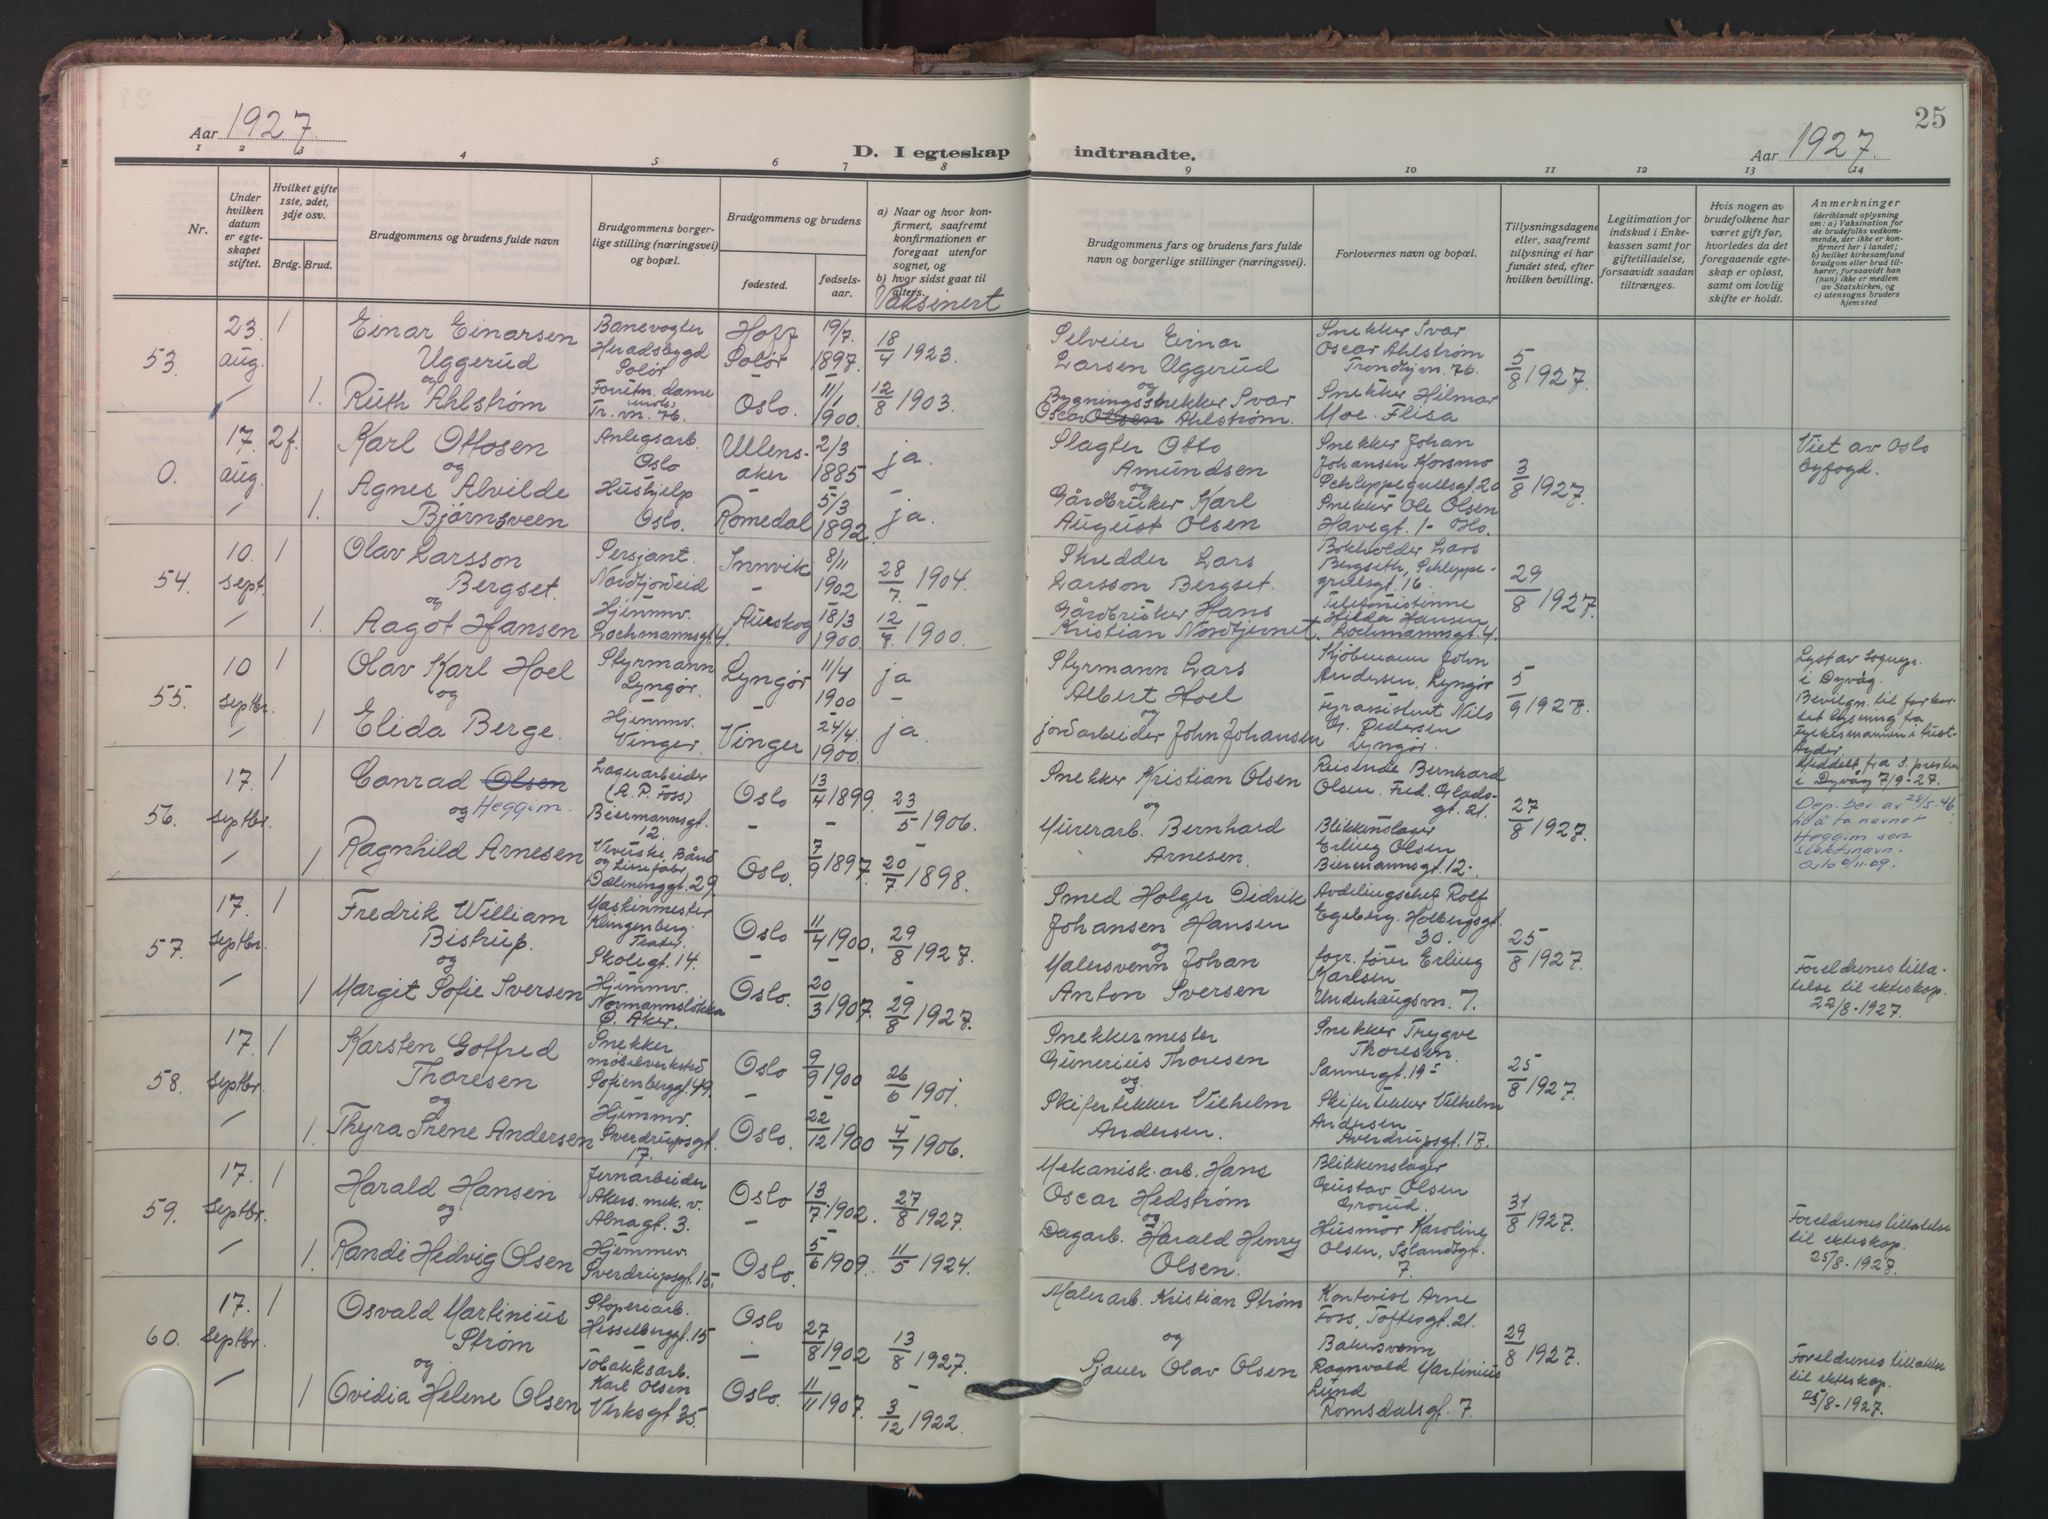 Aar 1927.
D. I egteskap
indtraadte.
Aar 1927.
25
1 2 3 4 5 6 7 8 9 10 11 12 13 14
Nr.
Under hvilken datum er egteskapet stiftet.
Hvilket gifte 1ste, 2det, 3dje osv.
Brdg. Brud.
Brudgommens og brudens fulde navn
Brudgommens borgerlige stilling (næringsvei) og bopæl.
Brudgommens og brudens
fødested.
fødselsaar.
a) Naar og hvor konfirmert, saafremt konfirmationen er foregaat utenfor sognet, og
b) hvor sidst gaat til alters.
Vaksinert
Brudgommens fars og brudens fars fulde navn og borgerlige stillinger (næringsvei).
Forlovernes navn og bopæl.
Tillysningsdagene eller, saafremt tillysning ei har fundet sted, efter hvilken bevilling.
Legitimation for indskud i Enkekassen samt for giftetilladelse, forsaavidt saadan tiltrænges.
Hvis nogen av brudefolkene har været gift før, hvorledes da det foregaaende egteskap er opløst, samt om lovlig skifte er holdt.
Anmerkninger
(deriblandt oplysning om: a) Vaksination for de brudefolks vedkommende, der ikke er konfirmert her i landet;
b) hvilket kirkesamfund brudgom eller brud tilhører, forsaavidt han (hun) ikke er medlem av Statskirken, og
c) utensogns bruders hjemsted
53. 23. aug. 1
Einar Einarsen Uggerud
Banevogter Heradsbygd Solør
Hoff Solør
19/7. 1897.
18/4 1923.
Selveier Einar Larsen Uggerud
Snekker Ivar Oscar Ahlstrøm Trondhjvn. 76.
5/8 1927.
og
1. Ruth Ahlstrøm
Forretn. dame
Tr. vn. 76.
Oslo.
11/1 1900.
12/8 1903.
og
Bygningssnekker Ivar Oscar Olsen Ahlstrøm.
Snekker Hilmar Moe. Flisa
0. 17. aug. 2 f.
Karl Ottosen
Anlegsarb. Oslo
Ullensaker
2/3 1885
ja.
Slagter Otto Amundsen
Snekker Johan Johansen Korsmo Schleppegrellsgt. 20
3/8 1927.
Viet av Oslo byfogd.
og
1. Agnes Alvilde Bjørnsveen
Hushjelp Oslo.
Romedal
5/3 1892.
ja.
og
Gårdbruker Karl August Olsen
Snekker Ole Olsen Havegt. 1 - Oslo.
54. 10. sept. 1
Olav Larsson Bergset.
Sersjant. Nordfjordeid
Innvik
8/11 1902
28/7. 1904
Skredder Lars Larsson Bergset.
Bokholder Lars Bergseth, Schleppegrellsgt. 16.
29/8 1927.
og
1. Aagot Hansen
Hjemmv. Lochmannsgt. 4.
Aurskog
18/3 1900.
12/7 1900.
Gårdbruker Hans Kristian Nordtjernet.
Telefonistinne Hilda Hansen Lochmannsgt. 4.
55. 10 septbr. 1
Olav Karl Hoel
Styrmann Lyngør.
Lyngør
11/4 1900
ja
Styrmann Lars Albert Hoel
Kjøbmann John Andersen, Lyngør
5/9 1927.
Lyst av sognepr. i Dyvåg.
Bevilgn. til forkortet lysning fra Fylkesmannen i Aust-Agder.
Meddelt fra s. presten i Dyvåg 7/9-27.
og
1 Elida Berge.
Hjemmv. Vinger.
Vinger
24/4. 1900.
ja.
og
jordarbeider John Johansen
Fyrassistent Nils Pedersen Lyngør.
56. 17. septbr. 1
Conrad Olsen
og Heggim.
Lagerarbeider (A. P. Foss) Beiermannsgt. 12.
Oslo
13/4 1899.
23/5 1906.
Snekker Kristian Olsen
Reisende Bernhard Olsen. Fred. Gladsgt. 21.
27/8 1927.
Dep. bev. av 28/5. 46 til å ta navnet Heggim som slektsnavn.
1 Ragnhild Arnesen
Veverske Bånd og Lissefabr. Dæleninggt. 29.
Oslo.
7/9 1897.
20/7 1898.
og
Murerarb. Bernhard Arnesen.
Blikkenslager Erling Olsen Biermannsgt. 12.
57. 17. septbr. 1
Fredrik William Bistrup.
Maskinmester Klingenberg Teater. Skolegt. 14.
Oslo
11/4 1900.
29/8 1927.
Smed Holger Didrik Johansen Hansen
Avdelingschef Rolf Egeberg. Holbergsgt. 30.
25/8 1927.
og
1 Margit Sofie Iversen
Hjemmv. Normannsløkka Ø. Aker.
Oslo.
20/3 1907.
29/8 1927.
og
Malersvenn Johan Anton Iversen
Erling Karlsen Underhaugsvn. 7.
Foreldrenes tillatelse til ekteskap. 22/8-1927.
58. 17. septbr. 1
Karsten Gotfred Thoresen
Snekker møbelverksted Sofienberggt. 49.
Oslo
9/9 1900
26/6 1901.
Snekkermester Gunerius Thoresen
Snekker Trygve Thoresen. Sannergt. 19
25/8 1927.
og
1. Thyra Irene Andersen
Hjemmv. Sverdrupsgt. 17.
Oslo.
22/12 1900
4/7 1906.
og
Skifertekker Vilhelm Andersen.
Skifertekker Vilhelm Andersen Sverdrupsgt. 17.
59. 17. septbr. 1
Harald Hansen
Jernarbeider Akers mek. v. Alnagt. 3.
Oslo
13/7. 1902.
27/8 1927.
Mekanisk. arb. Hans Oscar Hedstrøm
Blikkenslager Gustav Olsen Grorud.
31/8 1927.
og
1. Randi Hedvig Olsen
Hjemmev. Sverdrupsgt. 15.
Oslo.
5/6 1909.
11/5 1924.
og
Dagarb. Harald Henry Olsen.
Husmor Karoline Olsen, Islandsgt. 7.
Foreldrenes tillatelse til ekteskap. 25/8-1927.
60. 17. septbr. 1
Osvald Martinius Strøm
Støperiarb. Hesselberggt. 15
Oslo
27/8 1902
13/8 1927.
Malerarb. Kristian Strøm
Kontorist Arne Foss, Toftesgt. 21.
29/8 1927.
og
1 Ovidia Helene Olsen
Tobakksarb. Karl Olsen Verksgt. 35.
Oslo.
11/11 1907.
3/12 1922.
og
Sjauer Olav Olsen
Bakersvenn Ragnvald Martinius Lund Romsdalsgt. 7.
Foreldrenes tillatelse til ekteskap. 25/8-1927.